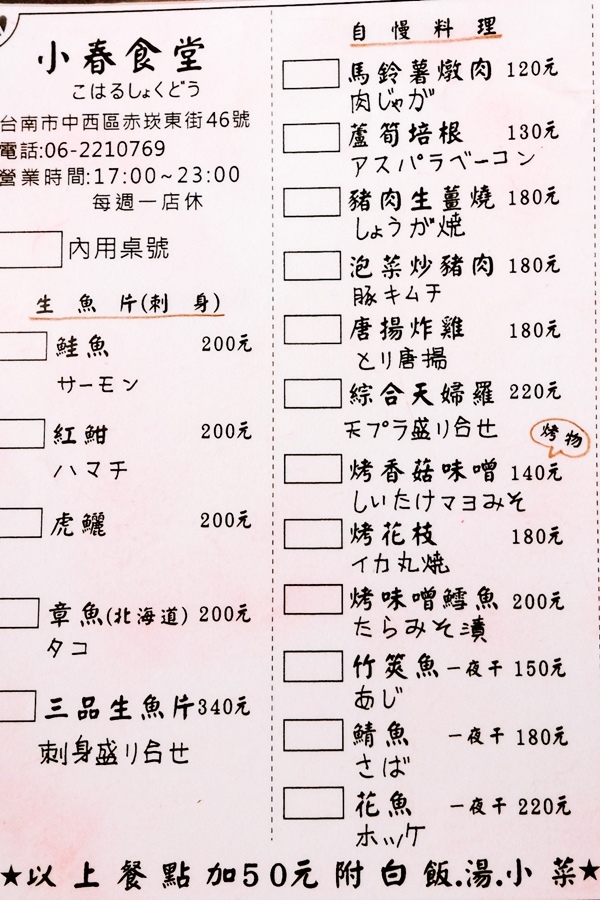 小春食堂
こはるしょくどう
台南市中西區赤崁東街46號
電話:06-2210769
營業時間:17:00~23:00
每週一店休
內用桌號
生魚片(刺身)
鮭魚 200元
サーモン
紅魽 200元
ハマチ
虎鱺 200元
章魚(北海道) 200元
タコ
三品生魚片 340元
刺身盛り合せ
自慢料理
馬鈴薯燉肉 120元
肉じゃが
蘆筍培根 130元
アスパラベーコン
豬肉生薑燒 180元
しょうが焼
泡菜炒豬肉 180元
豚キムチ
唐揚炸雞 180元
とり唐揚
綜合天婦羅 220元
天プラ盛り合せ
烤物
烤香菇味噌 140元
しいたけマヨみそ
烤花枝 180元
イカ丸焼
烤味噌鱈魚 200元
たらみそ漬
竹筴魚一夜干 150元
あじ
鯖魚 一夜干 180元
さば
花魚 一夜干 220元
ホッケ
★以上餐點加50元附白飯.湯.小菜★